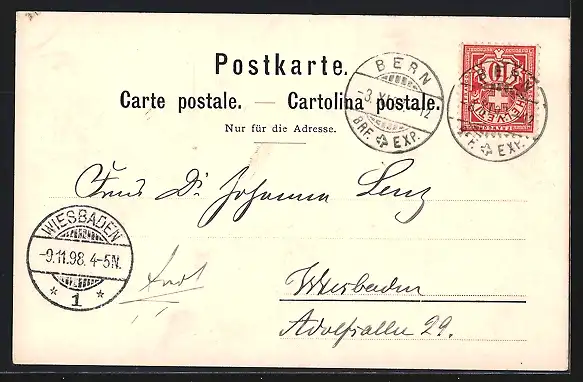 Postkarte.
Carte postale. — Cartolina postale.
Nur für die Adresse.
BERN
-3. XI. 12
BRF. EXP.
10
HELVETIA
BERN
BRF. EXP.
Frau Dr. Johanna Lenz
WIESBADEN
-9.11.98. 4-5N.
* 1 *
Wiesbaden
Adolfsallee 29.